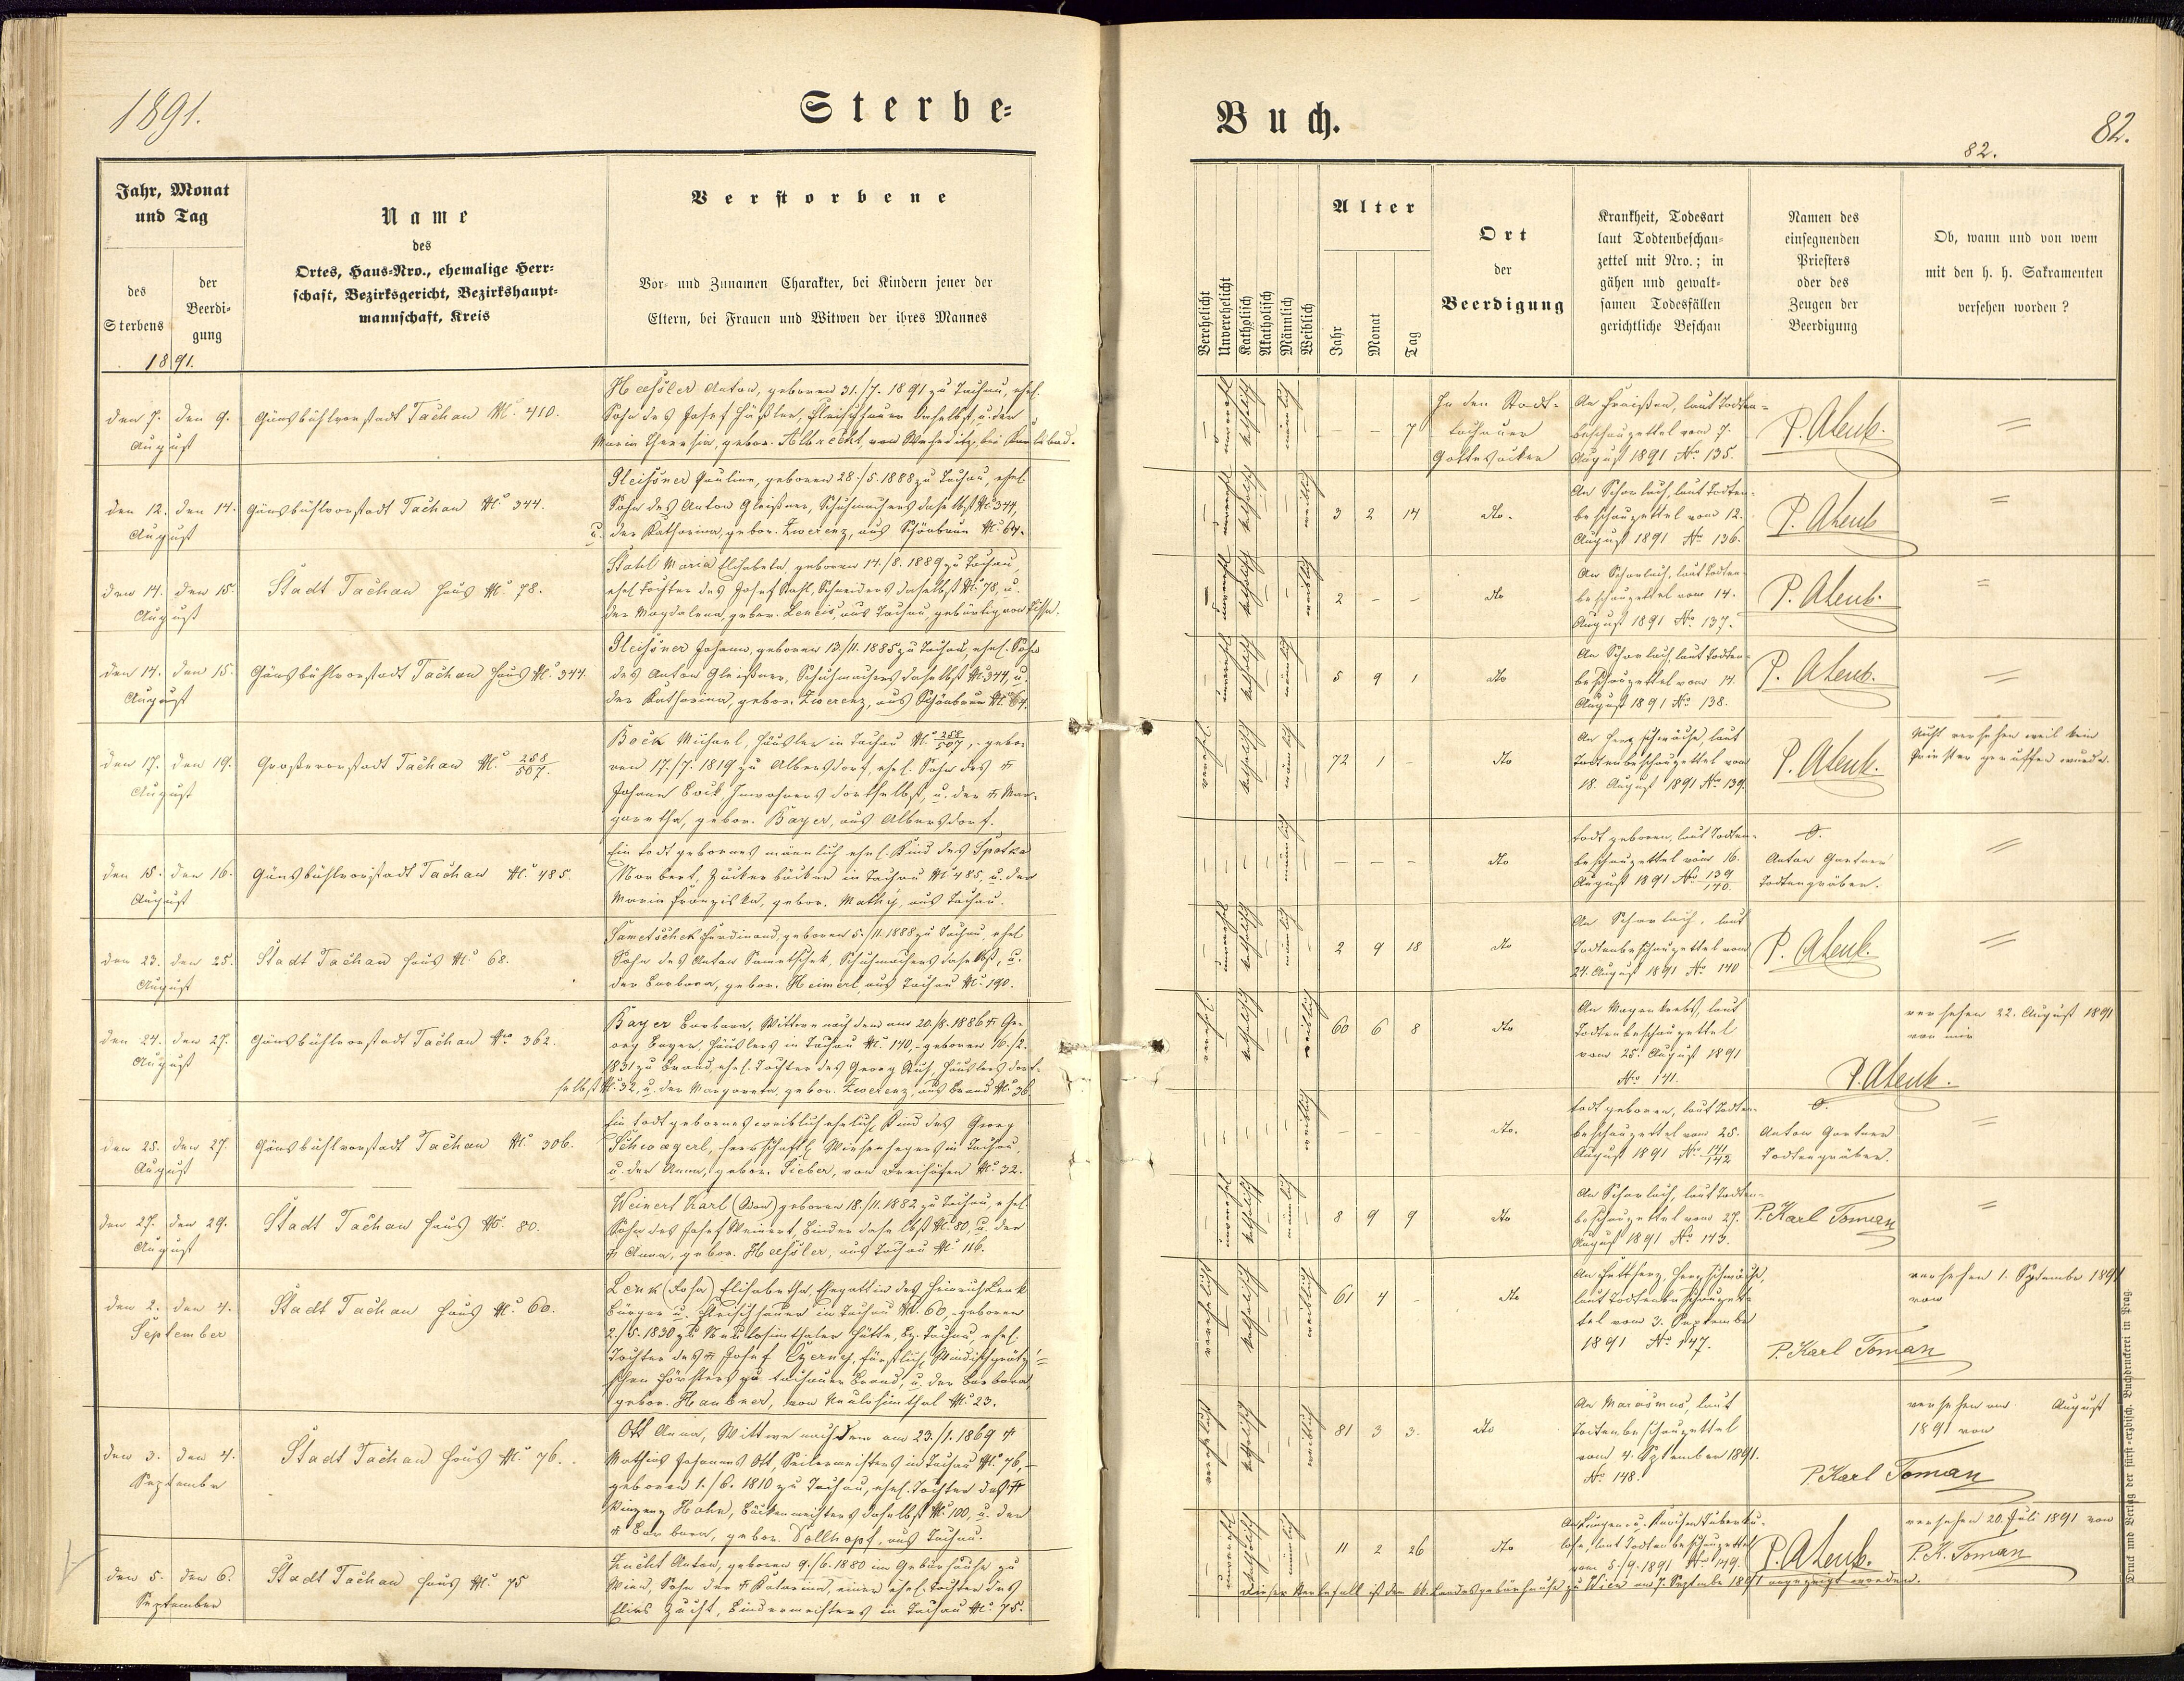 1891.
Sterbe=
Jahr, Monat
und Tag
des
Sterbens
der
Beerdi=
gung
1891.
Name
des
Ortes, Haus=Nro., ehemalige Herr=
schaft, Bezirksgericht, Bezirkshaupt=
mannschaft, Kreis
Verstorbene
Vor= und Zunamen Charakter, bei Kindern jener der
Eltern, bei Frauen und Witwen der ihres Mannes
den 7. den 9.
August
Gänsbühlvorstadt Tachau № 410.
Haessler Anton, geboren 31./7. 1891 zu Tachau, ehel.
Sohn des Josef Häßler, Fleischhauer daselbst, u. der
Maria Theresia, gebor. Albrecht, von Weheditz, bei Karlsbad.
den 12. den 14.
August
Gänsbühlvorstadt Tachau № 344.
Gleissner Pauline, geboren 28./5. 1888 zu Tachau, ehel
Sohn des Anton Gleißner, Schuhmachers daselbst № 344,
u. der Katharina, gebor. Zwerenz, aus Schönbrun № 64.
den 14. den 15.
August
Stadt Tachau Haus № 78.
Stahl Maria Elisabeta, geboren 14./8. 1889 zu Tachau,
ehel Tochter des Josef Stahl, Schneiders daselbst № 78, u.
der Magdalena, gebor. aus Tachau, gebürtig von
den 14. den 15.
August
Gänsbühlvorstadt Tachau Haus № 344.
Gleissner Johann, geboren 13./11. 1885 zu Tachau, ehel. Sohn
des Anton Gleißner, Schuhmachers daselbst № 344, u.
der Katharina, gebor. Zwerenz, aus Schönbrun № 64.
den 17. den 19.
August
Großevorstadt Tachau № 258/507.
Bock Michael, Häusler in Tachau № 258/507, - gebo-
ren 17./7. 1819 zu Albersdorf, ehel. Sohn des †
Johann Bock Inwohners dortselbst, u. der † Mar-
garetha, gebor. Bayer, aus Albersdorf.
den 15. den 16.
August
Gänsbühlvorstadt Tachau № 485.
Ein todt gebornes männlich ehel. Kind des Spotka
Norbert, Zuckerbäcker in Tachau № 485, u. der
Maria Franziska, gebor. Mathy, aus Tachau.
den 23. den 25.
August
Stadt Tachau Haus № 68.
Sametschek Ferdinand, geboren 5./11. 1888 zu Tachau, ehel
Sohn des Anton Sametschek, Schuhmachers daselbst, u.
der Barbara, gebor. Heimerl, aus Tachau № 190.
den 24. den 27.
August
Gänsbühlvorstadt Tachau № 362.
Bayer Barbara, Wittwe nach dem am 20./8. 1886 † Ge-
org Bayer, Häuslers in Tachau № 140, - geboren 16./2.
1831 zu Brand, ehel. Tochter des Georg Häuslers dort-
selbst № 32, u. der Margareta, gebor. Zwerenz, aus Brand № 36.
den 25. den 27.
August
Gänsbühlvorstadt Tachau № 306.
Ein todt gebornes weiblich ehelich Kind des Georg
Schwagerl, herrschaftl. Wiesenhegers in Tachau,
u. der Anna, gebor. Sieber, von Dreihöfen № 32.
den 27. den 29.
August
Stadt Tachau Haus № 80.
Weinert Karl geboren 18./11. 1882 zu Tachau, ehel.
Sohn des Josef Weinert, Binder daselbst № 80, u. der
† Anna, gebor. Haessler, aus Tachau № 116.
den 2. den 4.
September
Stadt Tachau Haus № 60.
Lenk (Rosa) Elisabetha, Ehegattin des Heinrich Lenk
Bürger u. Fleischhauer in Tachau № 60, - geboren
2./5. 1830 zu Neulosimthaler Hütte, Bz. Tachau, ehel.
Tochter des † Josef Czerny, fürstlich Windischgrätz'=
schen Försters zu tachauer Brand, u. der Barbara,
gebor. Haubner, von Neulosimthal № 23.
den 3. den 4.
September
Stadt Tachau Haus № 76.
Ott Anna, Wittwe nach dem am 23./1. 1869 †
Mathias Johannes Ott, Seilermeisters in Tachau № 76, -
geboren 1./6. 1810 zu Tachau, ehel. Tochter des †
Vinzenz Hahn, Bäckermeisters daselbst № 100, u. der
† Barbara, gebor. Dollhopf, aus Tachau.
den 5. den 6.
September
Stadt Tachau Haus № 75
Zucht Anton, geboren 9./6. 1880 im Gebärhause zu
Wien, Sohn der † Katarina, einer ehel. Tochter des
Elias Zucht, Bindermeisters in Tachau № 75.
Buch.
82.
82.
Verehelicht
Unverehelicht
Katholisch
Akatholisch
Männlich
Weiblich
Alter
Jahr
Monat
Tag
Ort
der
Beerdigung
Krankheit, Todesart
laut Todtenbeschau=
zettel mit Nro.; in
gähen und gewalt=
samen Todesfällen
gerichtliche Beschau
Namen des
einsegnenden
Priesters
oder des
Zeugen der
Beerdigung
Ob, wann und von wem
mit den h. h. Sakramenten
versehen worden?
– unverehel katholisch – männlich – – – 7
In den Stadt-
tachauer
Gottesacker
An Fraisen, laut Todten=
beschauzettel vom 7.
August 1891 No 135.
P. ALenk.
=
– unverehel katholisch – – weiblich 3 2 14 dto.
An Scharlach, laut Todten-
beschauzettel vom 12.
August 1891 No 136.
P. ALenk
=
– unverehel katholisch – – weiblich 2 – – dto
An Scharlach, laut Todten-
beschauzettel vom 14.
August 1891 No 137.
P. ALenk.
=
– unverehel katholisch – männlich – 5 9 1 dto
An Scharlach, laut Todten-
beschauzettel vom 14.
August 1891 No 138.
P. ALenk.
=
verehel. – katholisch – männlich – 72 1 – dto
An Herzschwäche, laut
Todtenbeschauzettel vom
18. August 1891 No 139.
P. ALenk.
Nicht versehen weil kein
Priester geruffen wurde.
– – – – männlich – – – – dto
todt geboren, laut Todten-
beschauzettel vom 16.
August 1891 No 139/140.
Anton Gartner
Todtengräber.
=
– unverehel katholisch – männlich – 2 9 18 dto
An Scharlach, laut
Todtenbeschauzettel vom
24. August 1891 No 140
P. ALenk.
=
verehel. – katholisch – – weiblich 60 6 8 dto
An Magenkrebs, laut
Todtenbeschauzettel
vom 25. August 1891
No 141.
versehen 22. August 1891
von mir
P. ALenk.
– – – – – weiblich – – – dto.
todt geboren, laut Todten-
beschauzettel vom 25.
August 1891 No 141/142
Anton Gartner
Todtengräber.
=
– unverehel katholisch – männlich – 8 9 9 dto
An Scharlach, laut Todten-
beschauzettel vom 27.
August 1891 No 143.
P. Karl Toman
=
verehel – katholisch – – weiblich 61 4 – dto
An Fettherz, Herzschwäche,
laut Todtenbeschauzet-
tel vom 3. September
1891 No 147.
versehen 1. Septembe 1891
von
P. Karl Toman
verehelicht – katholisch – – weiblich 81 3 3. dto
An Marasmus, laut
Todtenbeschauzettel
vom 4. September 1891.
No 148.
versehen am August
1891 von
P. Karl Toman
– unverehel katholisch – männlich – 11 2 26 dto
An Lungen- u. Tuberku-
lose, laut Todtenbeschauzettel
vom 5./9. 1891 No 149.
P. ALenk.
versehen 20. Juli 1891 von
P. K. Toman
Dieser Sterbefall ist dem kk. Landesgebärhause zu Wien am 7. Septembe 1891 angezeigt worden.
Druck und Verlag der fürst=erzbisch. Buchdruckerei in Prag.